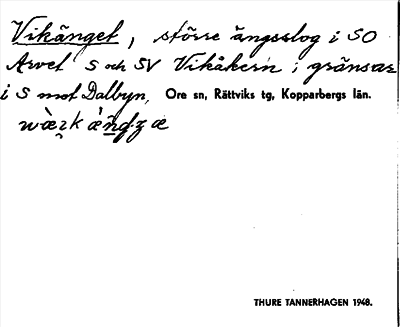 Vikänget, större ängsslog i SO
Arvet S och SV Vikåkern; gränsar
i S mot Dalbyn, Ore sn, Rättviks tg, Kopparbergs län.
THURE TANNERHAGEN 1948.